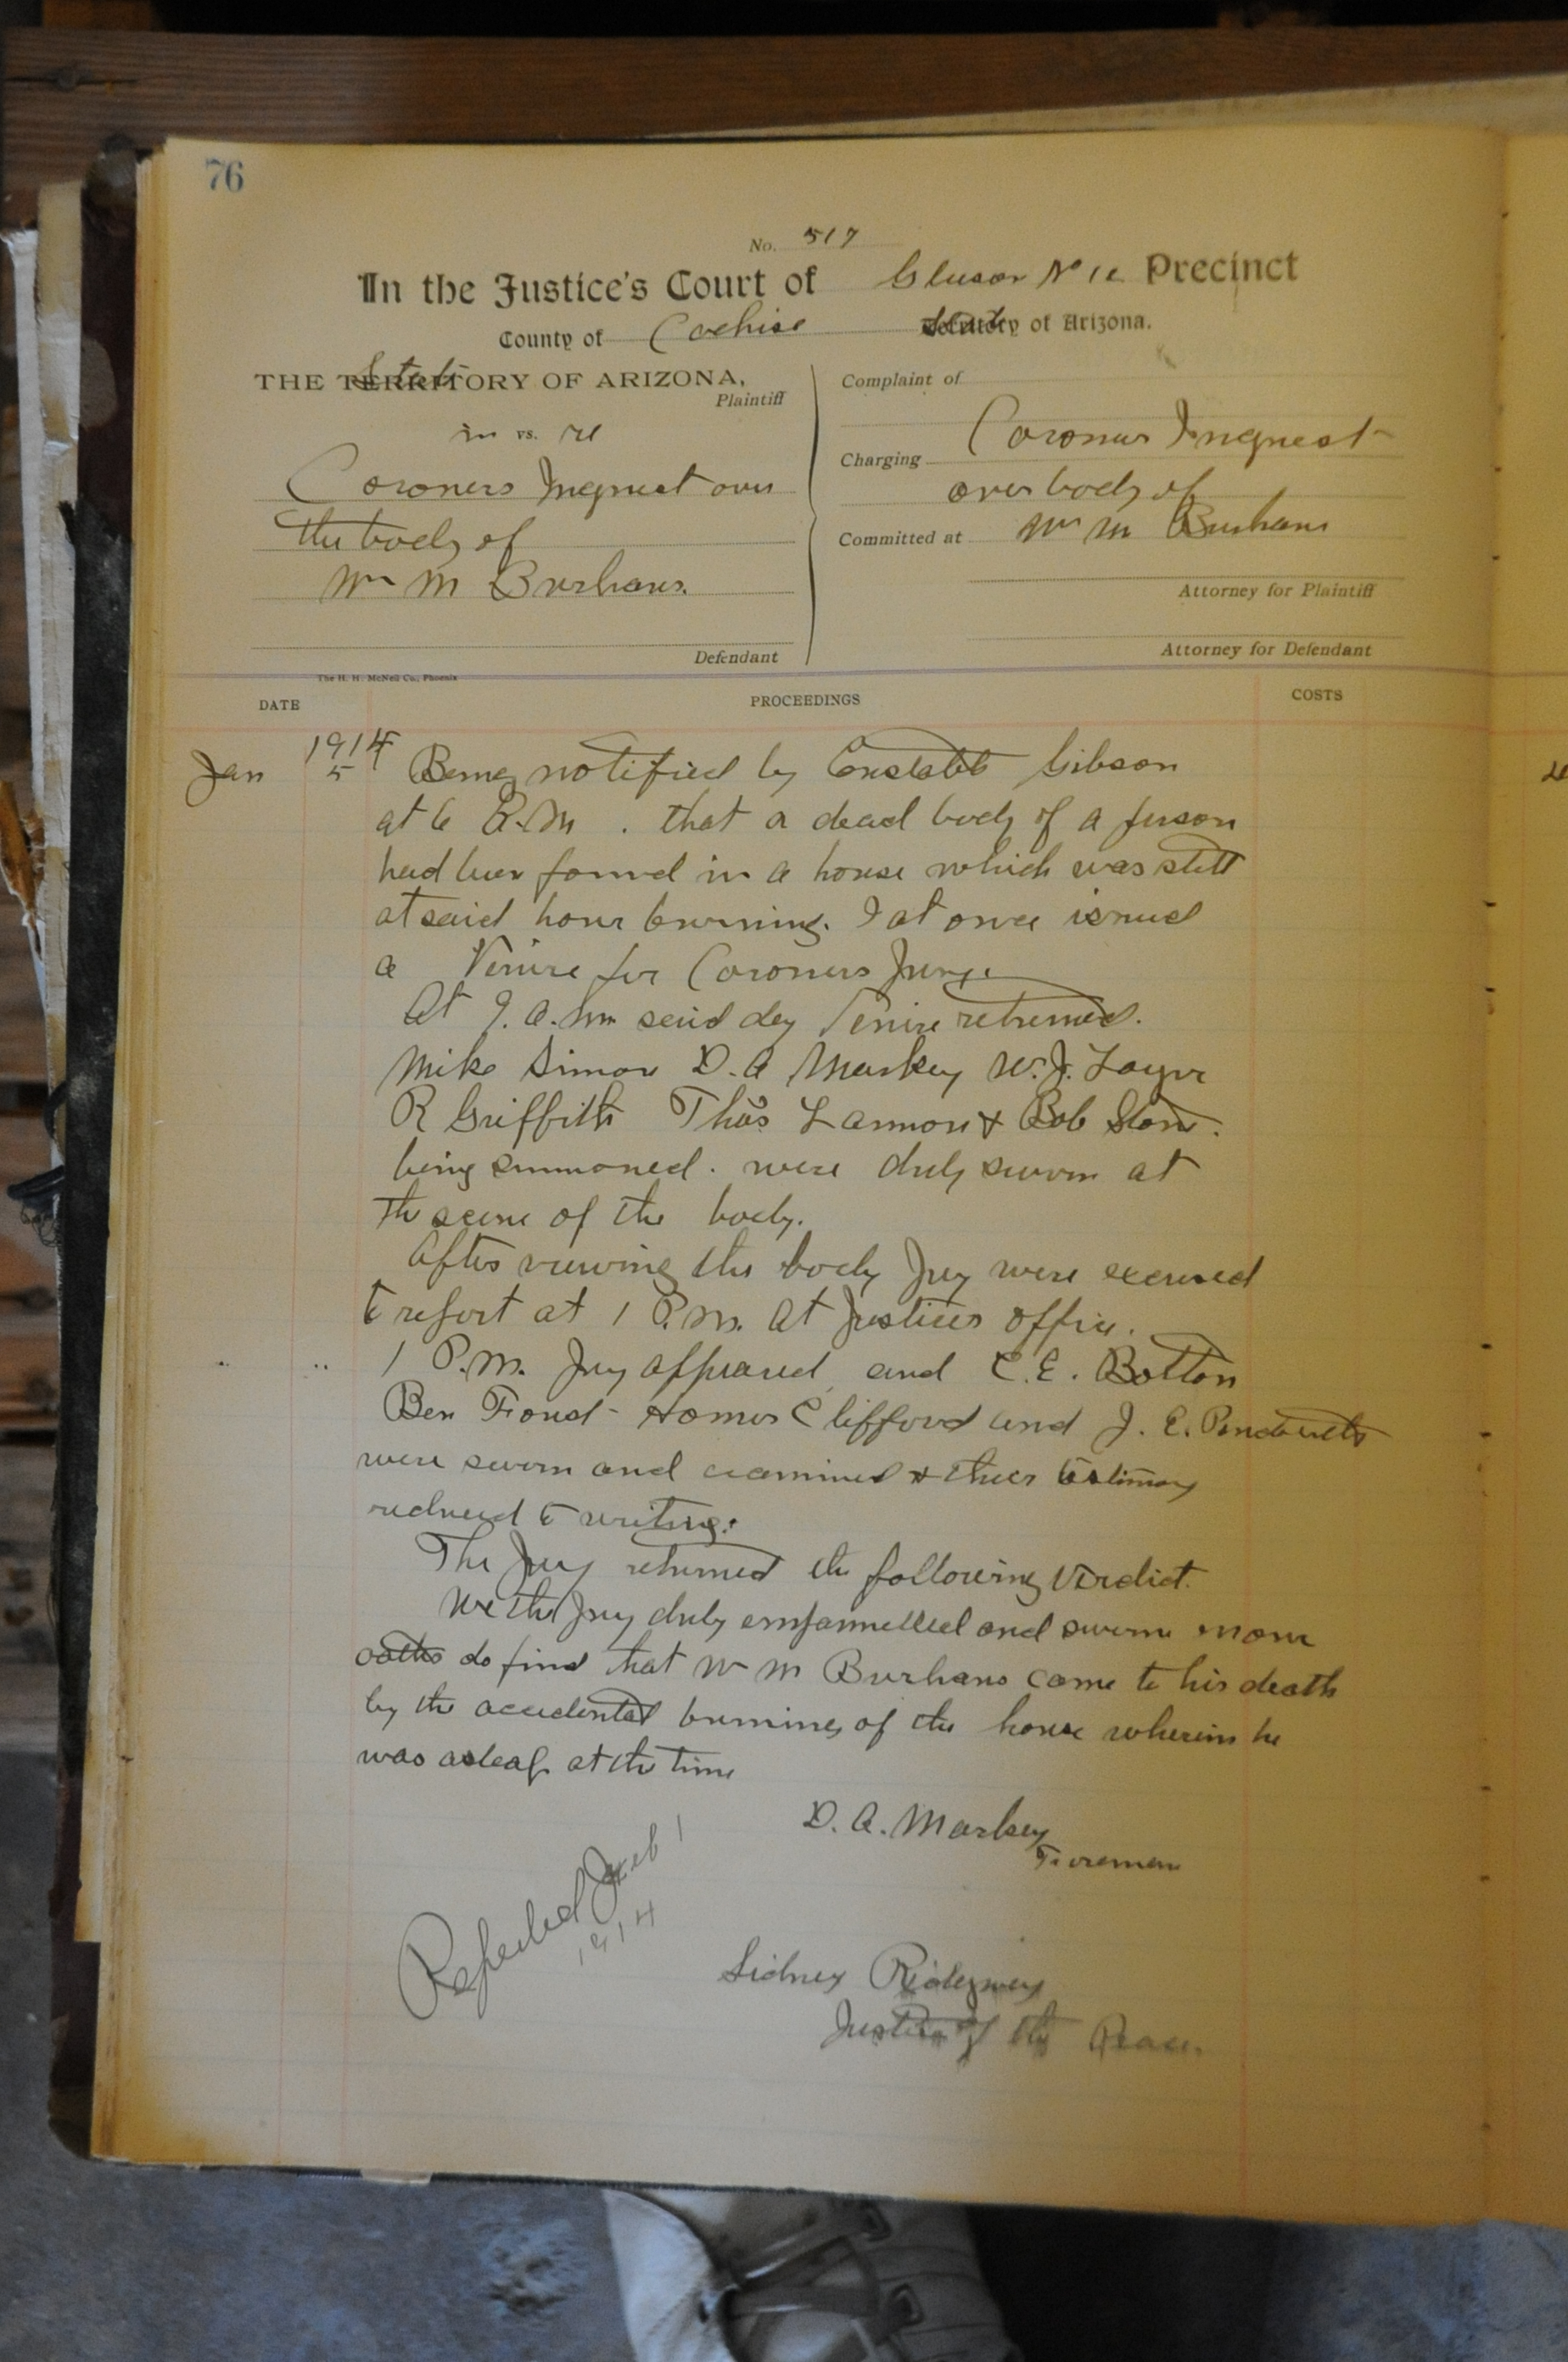 76
No. 517
In the Justice's Court of Gleason No 12 Precinct
County of Cochise State of Arizona.
State
THE TERRITORY OF ARIZONA,
Plaintiff
in vs. re
Coroners Inquest over
the body of
Wm M Burhans.
Defendant
Complaint of
Charging Coroners Inquest
over body of
Committed at Wm M Burhans
Attorney for Plaintiff
Attorney for Defendant
The H. H. McNeil Co., Phoenix
DATE PROCEEDINGS COSTS
1914
Jan 5 Being notified by Constable Gibson
at 6 A.M. that a dead body of a person
had been found in a house which was still
at said hour burning. I at once issued
a Venire for Coroners Jury.
At 9. a.m said day Venire returned.
Mike Simon D. A Markey W. J.
R Griffith Thos Lannon & Bob
being summoned. were duly sworn at
the scene of the body.
After viewing the body Jury were excused
to report at 1 P.M. at Justices office.
1 P.M. Jury appeared and C. E. Bolton
Ben Homer Clifford and J. E.
were sworn and examined & their testimony
reduced to writing.
The Jury returned the following Verdict.
We the Jury duly empannelled and sworn on our
oaths do find that Wm M Burhans came to his death
by the accidental burning of the house wherein he
was asleap at the time
D. A. Markey
Foreman
Reported Feb 1
1914
Sidney Ridgway
Justice of the Peace.